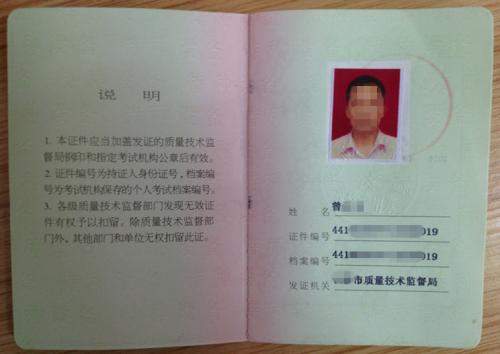 说 明
1. 本证件应当加盖发证的质量技术监
督局钢印和指定考试机构公章后有效。
2. 证件编号为持证人身份证号，档案
编号为考试机构保存的个人考试档案编号。
3. 各级质量技术监督部门发现无效证
件有权予以扣留。除质量技术监督部
门外，其他部门和单位无权扣留此证。
姓 名 曾
证件编号 441 019
档案编号 441 019
发证机关 市质量技术监督局